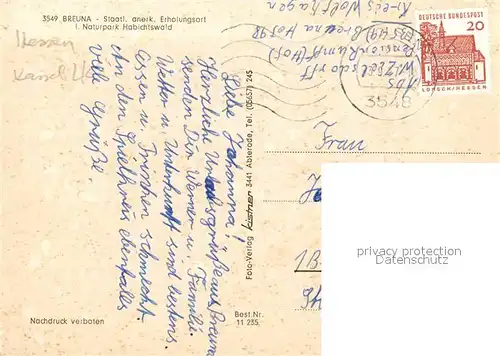 3549 BREUNA - Staatl. anerk. Erholungsort
i. Naturpark Habichtswald
Hessen
Kassel
Liebe Johanna!
Herzliche Urlaubsgrüße aus Breuna
senden Dir Werner u. Familie.
Wetter u. Unterkunft sind bestens.
Essen u. Trinken schmeckt.
An den Spielkreis ebenfalls
viele Grüße.
Nachdruck verboten
Foto-Verlag Kistner 3441 Abterode, Tel. (05657) 245
Best Nr.
11 235
Kreis Wolfhagen
(3549) Breuna Hof 98
Pension Rumpf (Hof)
3549
DEUTSCHE BUNDESPOST
20
LORSCH/HESSEN
Frau
1 B
privacy protection
oldthing.com